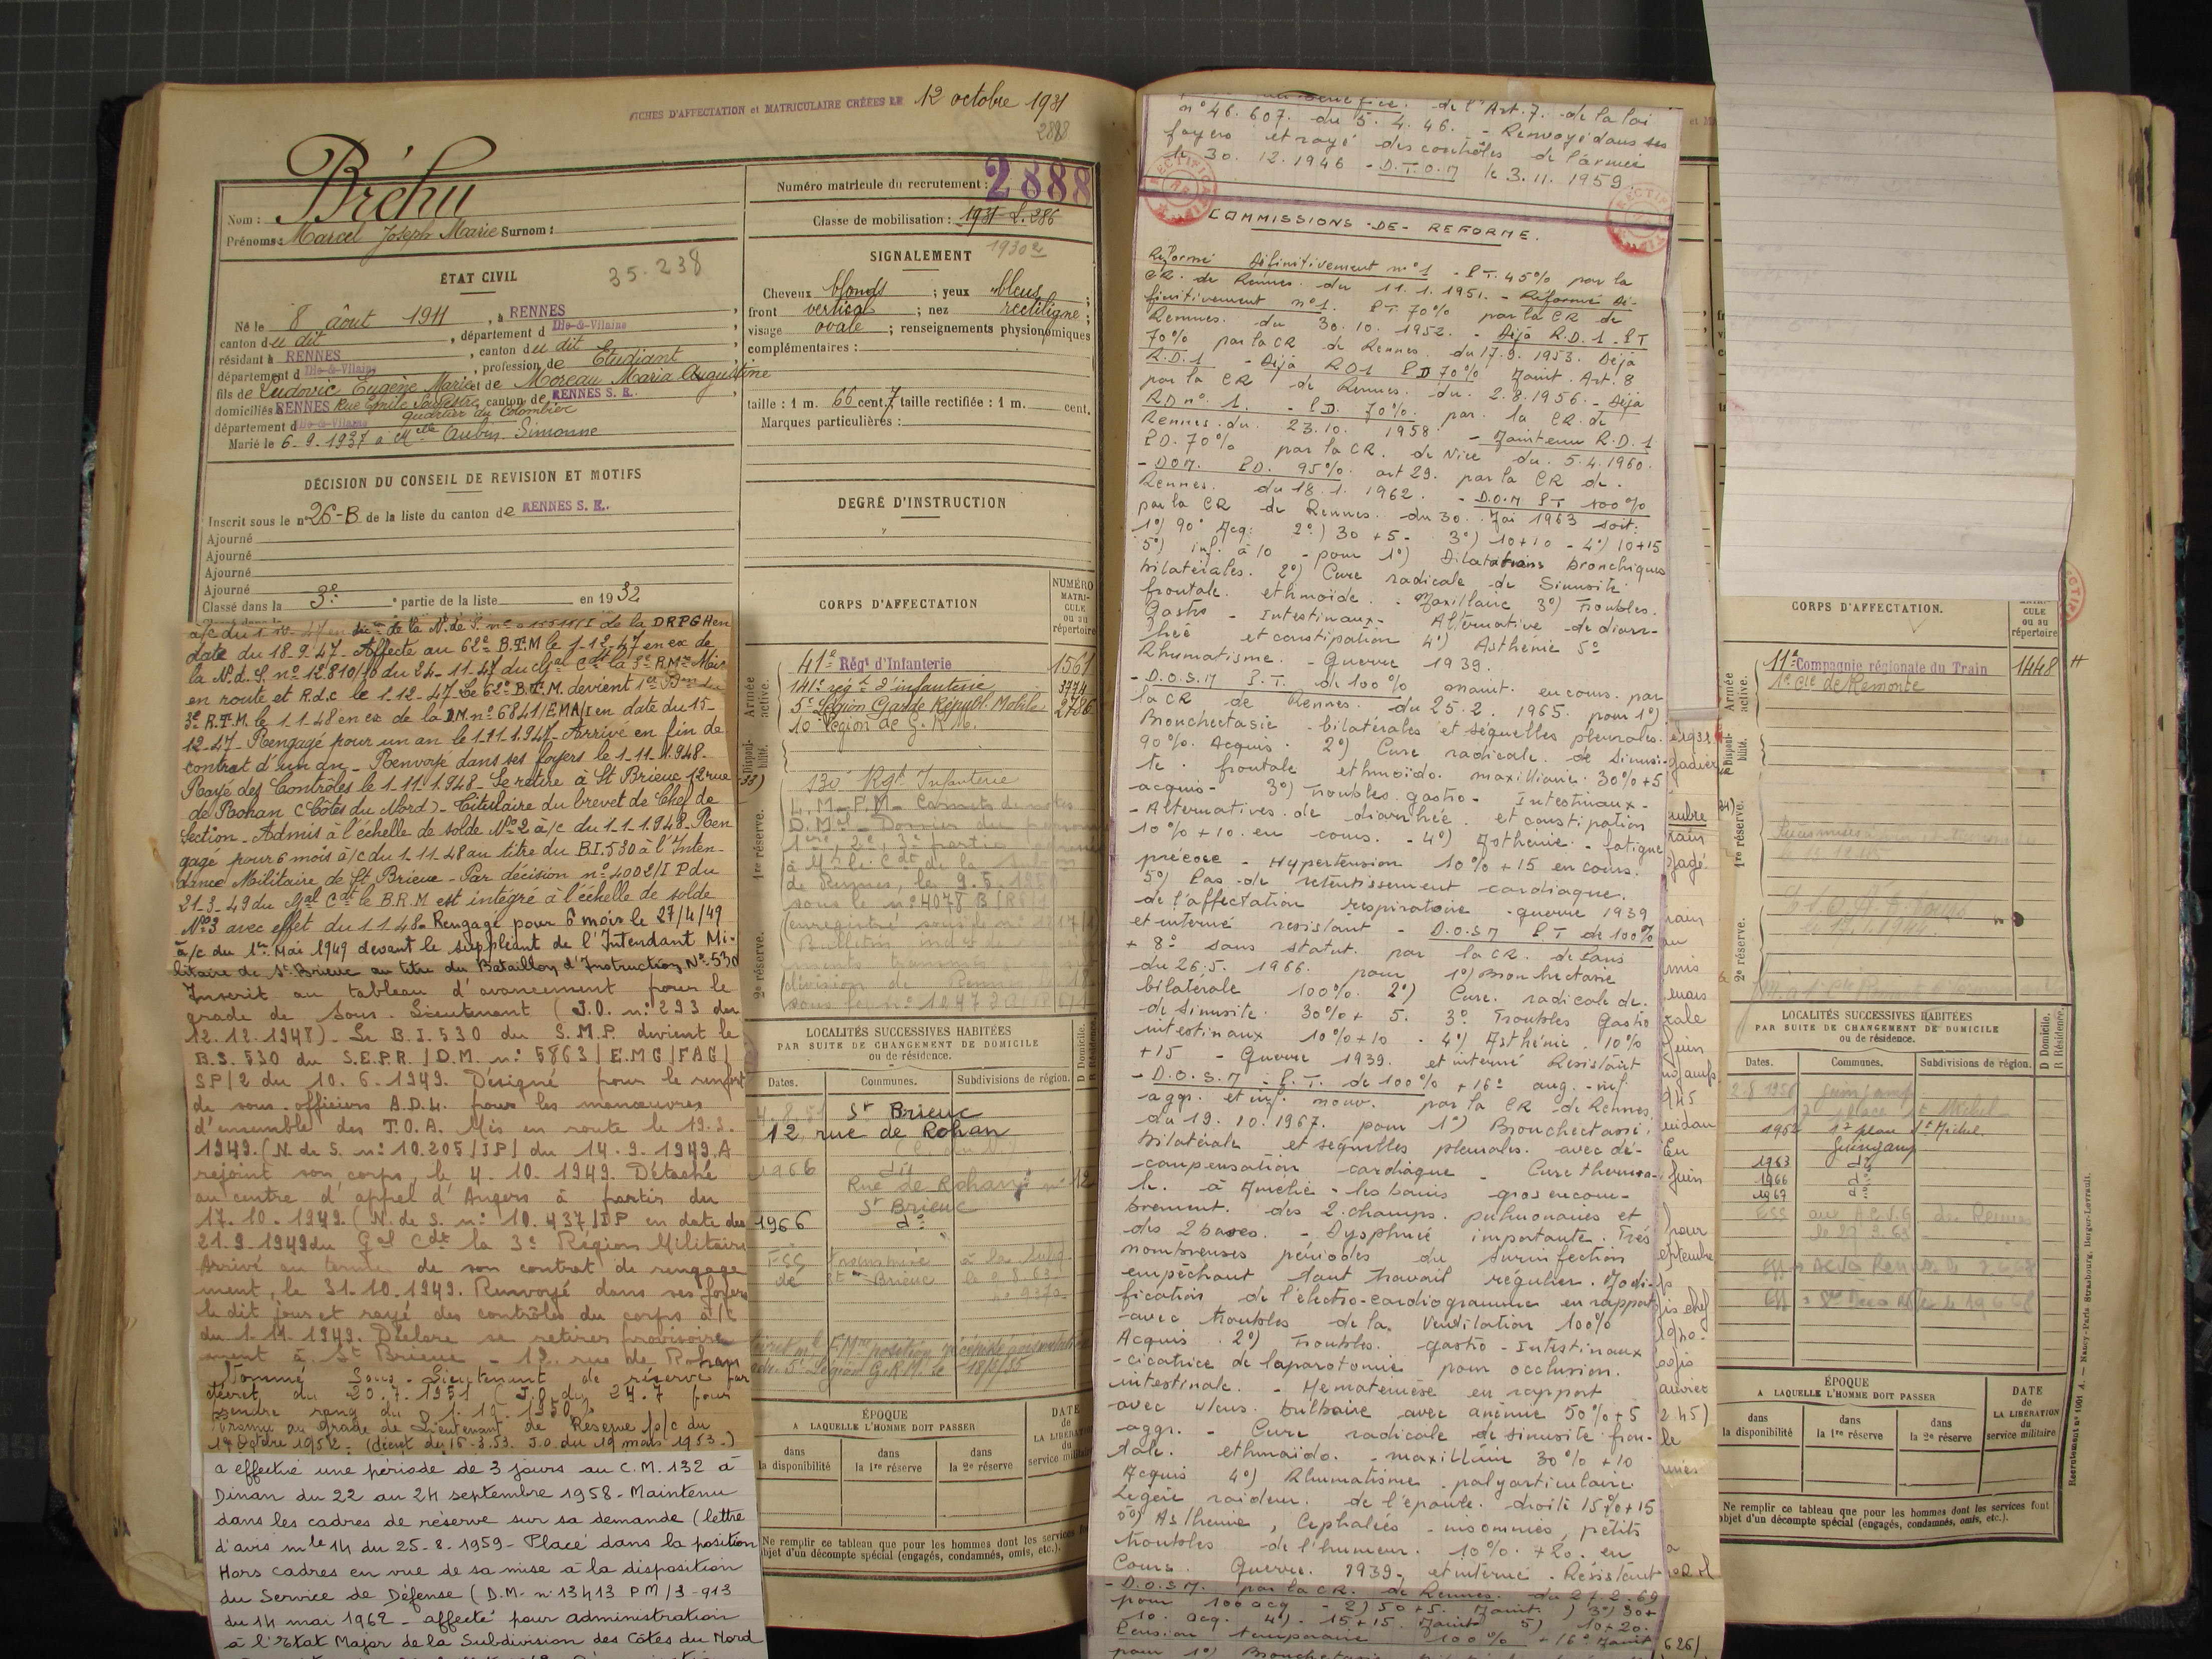 FICHES D'AFFECTATION et MATRICULAIRE CRÉÉES LE 12 octobre 1931
2888
Bréhu
Nom :
Prénoms : Marcel Joseph Marie Surnom :
ÉTAT CIVIL
35.238
Né le 8 août 1911, à RENNES
canton du dit, département d Ille-&-Vilaine
résidant à RENNES, canton du dit
département d Ille-&-Vilaine, profession de Etudiant
fils de Ludovic Eugène Marie et de Moreau Maria Augustine
domiciliés RENNES Rue Emile Souvestre, canton de RENNES S. E.
quartier du Colombier
département d Ille-&-Vilaine
Marié le 6-9-1937 à Melle Aubin Simonne
DÉCISION DU CONSEIL DE REVISION ET MOTIFS
Inscrit sous le n° 26-B de la liste du canton de RENNES S. E.
Ajourné
Ajourné
Ajourné
Ajourné
Classé dans la 3e partie de la liste en 1932
de la N. de S. de la DRPG en
date du 18.9.47 - Affecté au 62e B.T.M le 1-12-47 en ex de
la N.d.S. n° 12.810/10 du 24-11-47 du Gal Cdt la 3e R.M. Mis
en route et R.d.c le 1-12-47. Le 62e B.T.M. devient 1er Bon du
3e R.T.M. le 1.1.48 en ex de la D.M. n° 6841/EMA/I en date du 15-
12-47 - Rengagé pour un an le 1.11.1.947 - Arrivé en fin de
contrat d'un an - Renvoyé dans ses foyers le 1-11-1.948 -
Rayé des Contrôles le 1.11.1.948 - Se retire à St Brieuc 12 rue
de Rohan (Côtes du Nord) - Titulaire du brevet de Chef de
Section - Admis à l'échelle de solde N° 2 à/c du 1-1-1.948 - Ren
gagé pour 6 mois à/c du 1.11.48 au titre du B.I. 530 à l'Inten-
dance Militaire de St Brieuc - Par décision n° 4002/I P du
21-3-49 du Gal Cdt le B.R.M est intégré à l'échelle de solde
N°3 avec effet du 1.1.48 - Rengagé pour 6 mois le 27/4/49
à/c du 1er Mai 1949 devant le suppléant de l'Intendant Mi-
litaire de St Brieuc au titre du Bataillon d'Instruction N° 530
Inscrit au tableau d'avancement pour le
grade de Sous-Lieutenant (J.O. n° 293 du
12.12.1948) - Le B.I. 530 du S.M.P. devient le
B.S. 530 du S.E.P.R. / D.M. n° 5863 / E.M.G / FAG /
SP/2 du 10.6.1949. Désigné pour le renfort
de sous-officiers A.D.L. pour les manœuvres
d'ensemble des T.O.A. Mis en route le 19.9.
1949. (N. de S. n° 10.205 / IP / du 14.9.1949. A
rejoint son corps, le 4.10.1949. Détaché
au centre d'appel d'Angers à partir du
17.10.1949. (N. de S. n° 10.437 / DP en date des
21.9.1949 du Gal Cdt la 3e Région Militaire
Arrivé au terme de son contrat de rengage
ment, le 31.10.1949. Renvoyé dans ses foyers
le dit jour et rayé des contrôles du corps à/c
du 1.11.1949. Déclare se retirer provisoire
ment à St Brieuc - 12 rue de Rohan
Nommé Sous-Lieutenant de réserve par
décret du 20.7.1951 (J.O. du 24.7 pour
prendre rang du 1.10.1950.)
Promu au grade de Lieutenant de Réserve p/c du
14 Octobre 1952. (décret du 16.3.53. J.O. du 19 mars 1953.)
a effectué une période de 3 jours au C.M. 132 à
Dinan du 22 au 24 septembre 1958 - Maintenu
dans les cadres de réserve sur sa demande (lettre
d'avis n° 14 du 25-8-1959 - Placé dans la position
Hors cadres en vue de sa mise à la disposition
du Service de Défense (D.M- n° 13413 PM/3-913
du 14 mai 1962 - affecté pour administration
à l'Etat Major de la Subdivision des Côtes du Nord
Numéro matricule du recrutement : 2888
Classe de mobilisation : 1931-S.286
1930 2e
SIGNALEMENT
Cheveux blonds ; yeux bleus ;
front vertical ; nez rectiligne ;
visage ovale ; renseignements physionomiques
complémentaires :
taille : 1 m. 66 cent. 7 taille rectifiée : 1 m. cent.
Marques particulières :
DEGRÉ D'INSTRUCTION
CORPS D'AFFECTATION
NUMÉRO MATRI-CULE ou au répertoire
Armée active.
41e Régt d'Infanterie 1561
141e régt d'infanterie 3774
5e Légion Garde Républ. Mobile 2786
10e Légion de G.R.M.
Disponi-bilité.
1re réserve.
130e Rgt Infanterie
2e réserve.
LOCALITÉS SUCCESSIVES HABITÉES
PAR SUITE DE CHANGEMENT DE DOMICILE
ou de résidence.
Dates. Communes. Subdivisions de région. D Domicile. R Résidence.
4.8.51 St Brieuc
12 rue de Rohan
1966 do
Rue de Rohan n° 12
St Brieuc
1966 do
ESS transmise à la Subd.
de St Brieuc le 9.8.63
ÉPOQUE
A LAQUELLE L'HOMME DOIT PASSER
DATE de LA LIBÉRATION du service militaire
dans la disponibilité
dans la 1re réserve
dans la 2e réserve
Ne remplir ce tableau que pour les hommes dont les services font
objet d'un décompte spécial (engagés, condamnés, omis, etc.).
bénéfice de l'Art.7. de la loi
n° 46.607. du 5.4.46. - Renvoyé dans ses
foyers et rayé des contrôles de l'armée
le 30.12.1946 - D.T.O.M le 3.11.1959.
COMMISSIONS - DE - REFORME.
Réformé définitivement n° 1 - P.T. 45% par la
CR. de Rennes. du 11.1.1951. - Réformé dé-
finitivement n°1. P.T. 70% par la CR de
Rennes. du 30.10.1952. - Déjà R.D.1 - PT
70% par la CR de Rennes. du 17.9.1953. Déjà
R.D.1 - Déjà RD1 PD 70% Maint. Art. 8
par la CR de Rennes. du. 2.8.1956. - Déjà
RD n° 1. - P.D. 70%. par. la CR. de
Rennes. du. 23.10.1958. - Maintenu R.D.1
P.D. 70% par la CR. de Nice du. 5.4.1960.
- DOM. P.D. 95%. art 29. par la CR de.
Rennes. du 18.1.1962. - D.O.M P.T 100%
par la CR de Rennes. du 30. Mai 1963 soit:
1°) 90° Acq: 2°) 30 +5 - 3°) 10+10 - 4°) 10+15
5°) inf. à 10 - pour 1°) Dilatations bronchiques
bilatérales. 2°) Cure radicale de Sinusite
frontale. ethmoïde. - Maxillaire 3°) Troubles.
Gastro - Intestinaux - Alternative de diarr-
hée et constipation 4°) Asthénie 5°
Rhumatisme. - Guerre 1939.
- D.O.S.M P.T. de 100% maint. en cours. par
la CR de Rennes. du 25.2.1965. pour 1°)
Bronchectasie bilatérales et séquelles pleurales.
90%. Acquis. 2°) Cure radicale. de Sinusi-
te. frontale ethmoïdo. maxillaire: 30%+5
acquis - 3°) Troubles. gastro - Intestinaux -
- Alternatives. de diarrhée et constipation
10% + 10. en cours. - 4°) Asthénie. - fatigue
précoce - Hypertension 10% +15 en cours.
5°) Pas de retentissement cardiaque.
de l'affectation respiratoire - guerre 1939
et interné résistant - D.O.S.M P.T de 100%
+ 8° sans statut. par la CR. de sans
du 26.5.1966. pour 1°) Bronchectasie
bilatérale 100%. 2°) Cure. radicale de.
de Sinusite. 30%+ 5. 3° Troubles Gastro
intestinaux 10%+10 - 4°) Asthénie. 10%
+15 - Guerre 1939. et interné Resistant
- D.O.S.M - P.T. de 100% +16° aug. - inf.
agg. et inf. nouv. par la CR de Rennes.
du 19.10.1967. pour 1°) Bronchectasie.
bilatérale et séquelles pleurales. avec dé-
compensation cardiaque - Cure thermale
à Amélie - les bains - gros encom-
brement. des 2. champs. pulmonaires et
des 2 bases. - Dysphnée importante. Très
nombreuses périodes du surinfection
empêchant tout travail régulier. Modi-
fication de l'électro-cardiogramme en rapport
avec troubles de la. Ventilation 100%
Acquis. 2°) Troubles. gastro - Intestinaux
- cicatrice de laparotomie pour occlusion.
intestinale. - Hématémèse en rapport
avec ulcus. bulbaire avec anémie 50%+5
agg. - Cure radicale de sinusite fron-
tale. ethmoïdo. - maxillaire 30% +10
Acquis 4°) Rhumatisme. polyarticulaire.
Légère raideur. de l'épaule. droite 15%+15
5°) Asthénie, Céphalées - insomnies, petits
troubles de l'humeur. 10%. +20. en
Cours. Guerre. 1939. et interné - Résistant
- D.O.S.M. par la CR. de Rennes. du 27.2.69
pour 100 acq - 2) 50+5. Maint.) 3°) 30+
10. acq. 4°). 15+15. Maint 5) 10+20.
Pension temporaire 100% +16° Maint
pour 1°)
CORPS D'AFFECTATION.
MATRI-CULE ou au répertoire
Armée active.
11e Compagnie régionale du Train 1448
1e Cie de Remonte
Disponi-bilité.
1re réserve.
2e réserve.
LOCALITÉS SUCCESSIVES HABITÉES
PAR SUITE DE CHANGEMENT DE DOMICILE
ou de résidence.
Dates. Communes. Subdivisions de région. D Domicile. R Résidence.
2.8.1956 Guingamp
17 place St Michel
1962 17 place St Michel.
Guingamp
1963 do
1966 do
1967 do
ÉPOQUE
A LAQUELLE L'HOMME DOIT PASSER
DATE de LA LIBÉRATION du service militaire
dans la disponibilité
dans la 1re réserve
dans la 2e réserve
Ne remplir ce tableau que pour les hommes dont les services font
objet d'un décompte spécial (engagés, condamnés, omis, etc.).
Recrutement n° 1001 A. — Nancy-Paris-Strasbourg, Berger-Levrault.